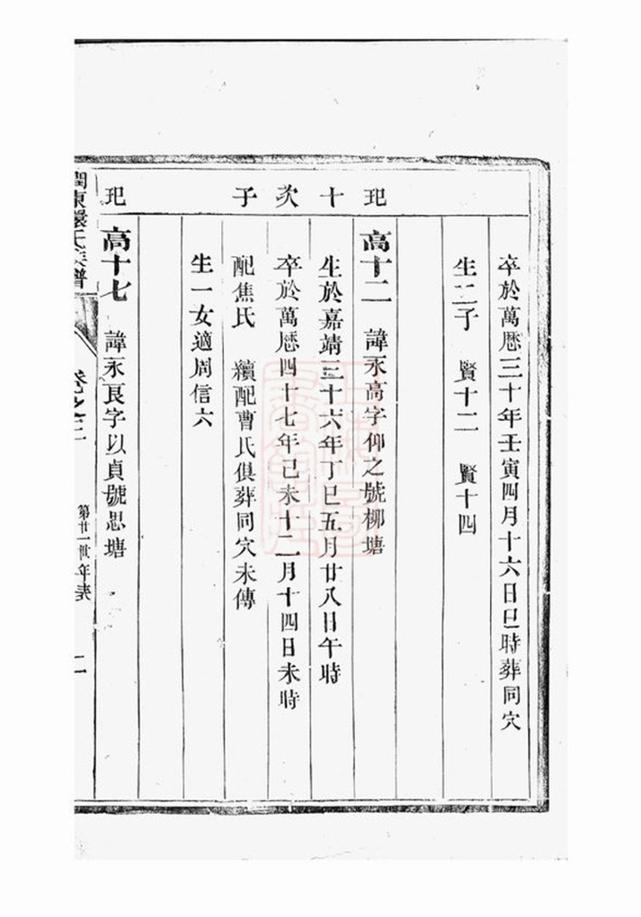 卒於萬厯三十年壬寅四月十六日巳時葬同穴
生二子 賢十二 賢十四
玘十次子
高十二 諱永高字仰之號柳塘
生於嘉靖三十六年丁巳五月廿八日午時
卒於萬厯四十七年己未十二月十四日未時
配焦氏 續配曹氏俱葬同穴未傳
生一女適周信六
玘
高十七 諱永良字以貞號思塘
東 氏族譜
卷之二
第廿一世年表
二